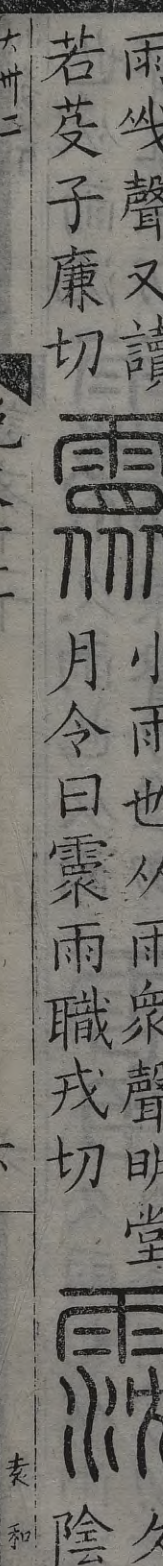 雨㦰聲又讀
若芟子廉切
霥
小雨也从雨眾聲明堂
月令曰霥雨職戎切
霃
久
陰
大卅二
袁和